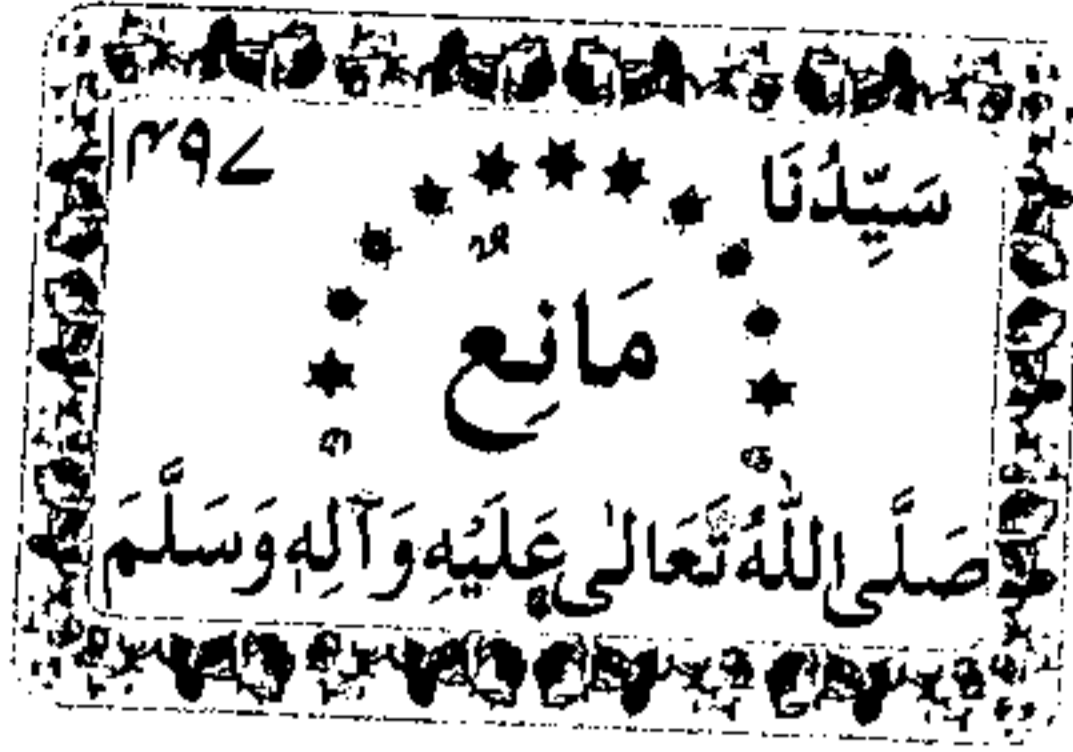 سَيِّدُنَا ۴۹۷
مَانِعٌ
صَلَّى اللّٰهُ تَعَالٰى عَلَيْهِ وَآلِهٖ وَسَلَّمَ